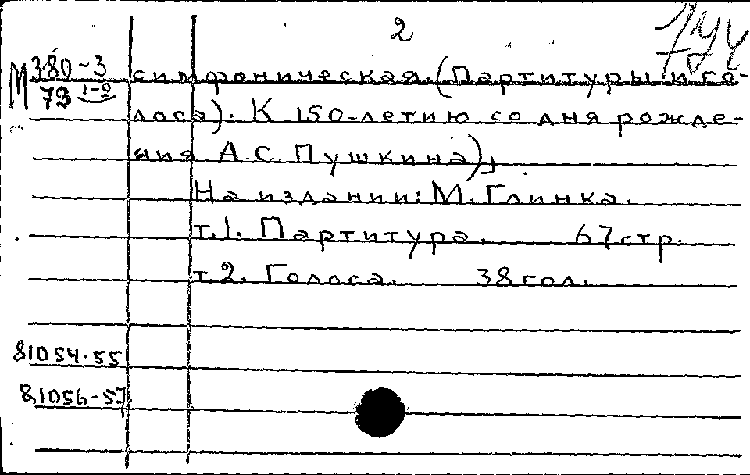 2
М 380-3 симфоническая. (Партитуры и го-
73 1-2 лоса). К 150-летию со дня рожде-
ния А.С. Пушкина)
На издании: М. Глинка.
т.1. Партитура. 67 стр.
т.2. Голоса. 38 гол.
81054-55
81056-57